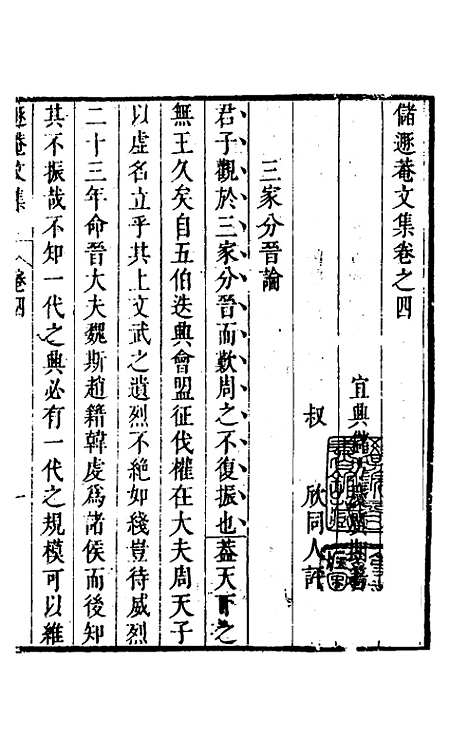 儲遯菴文集卷之四
宜興儲方慶
叔　欣同人評
三家分晉論
君子觀於三家分晉而歎周之不復振也蓋天下之
無王久矣自五伯迭興會盟征伐權在大夫周天子
以虛名立乎其上文武之遺烈不絕如綫豈待威烈
二十三年命晉大夫魏斯趙籍韓虔為諸侯而後知
其不振哉不知一代之興必有一代之規模可以維
遯菴文集　卷四　一